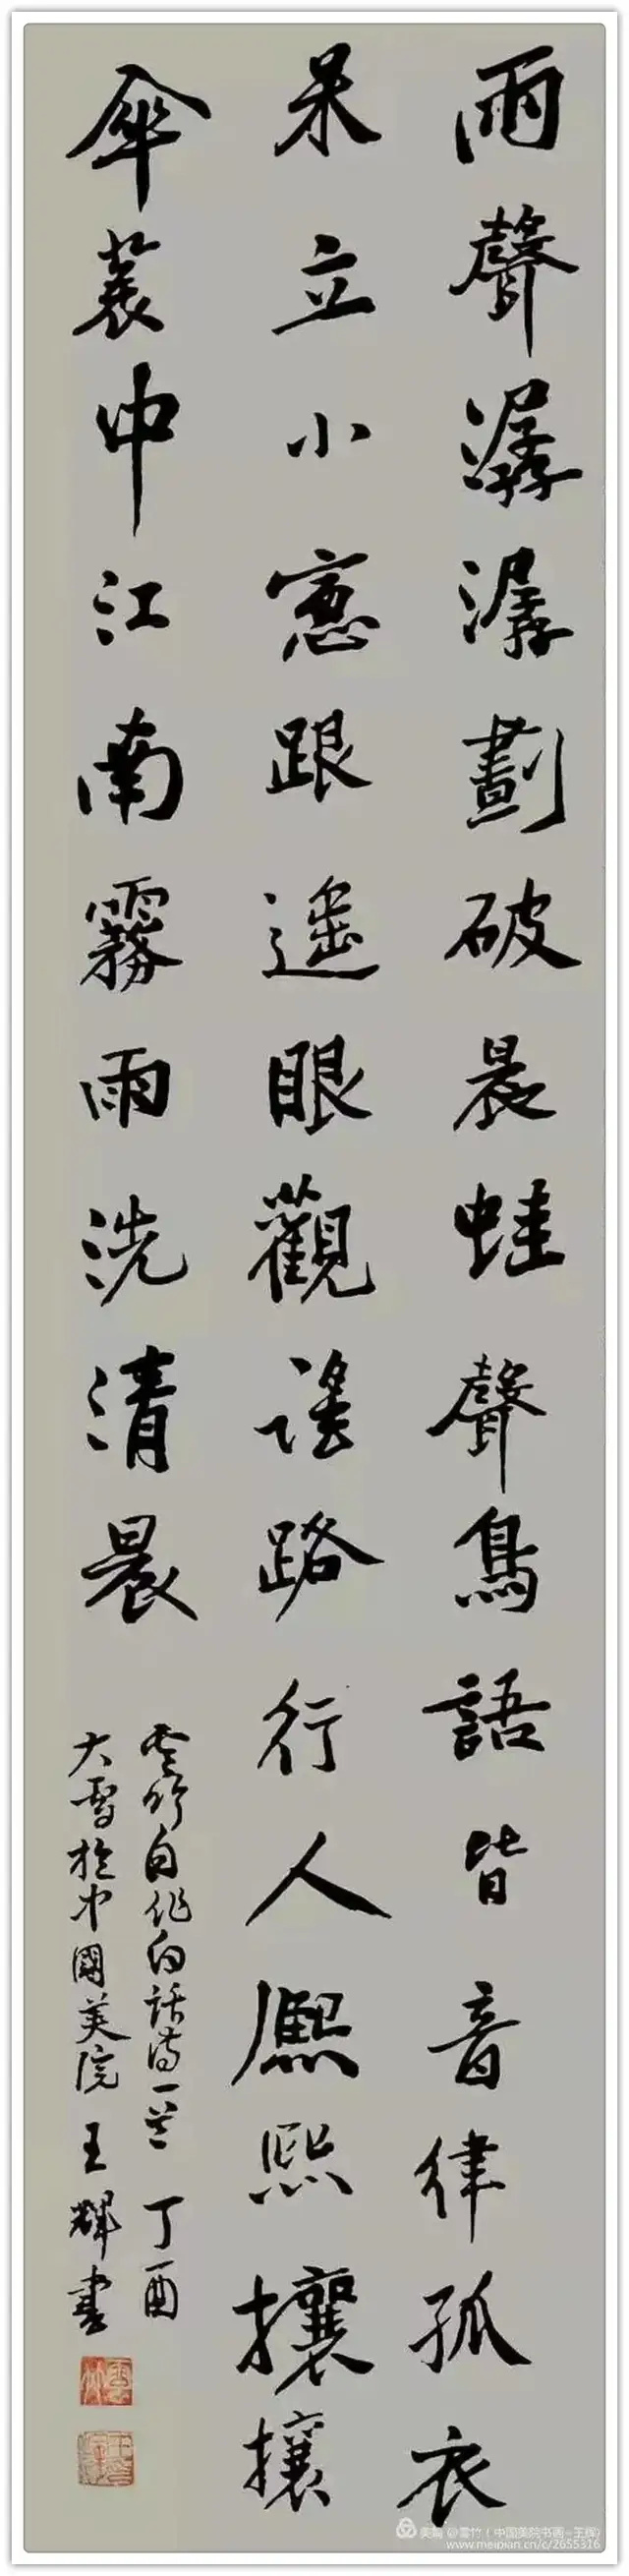 雨聲潺潺劃破晨蛙聲鳥語皆音律孤衣
呆立小窓跟遥眼觀謠路行人熈熙攘攘
傘蓑中江南霧雨洗清晨
雲竹自作白話詩一首 丁酉
大雪於中國美院 王輝書
美篇 @雲竹（中国美院书画-王辉）
www.meipian.cn/c/2655316